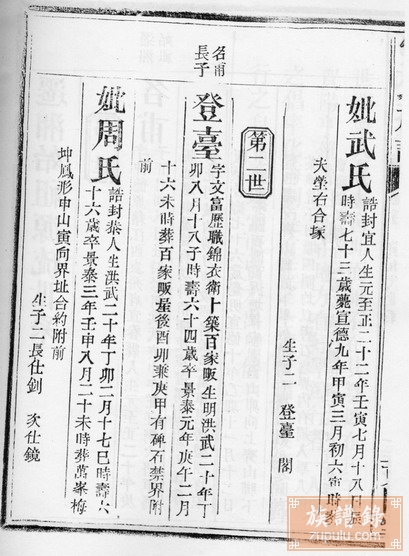 妣武氏
誥封宜人生元至正二十二年壬寅七月十八日辰
時壽七十三歲薨宣德九年甲寅三月初六寅時葬
夫塋右合塚
生子二 登臺 閣
第二世
名甫
長子
登臺
字文富歷職錦衣衛卜築百家畈生明洪武二十年丁
卯八月十八子時壽六十四歲卒景泰元年庚午二月
十六未時葬百家畈屋後酉卯兼庚甲有碑石禁界附
前
妣周氏
誥封恭人生洪武二十年丁卯二月十七巳時壽六
十六歲卒景泰三年壬申八月二十未時葬萬峯梅
坤鳳形申山寅向界址合約附前
生子二長仕釗 次仕鏡
族譜錄
zupulu.com